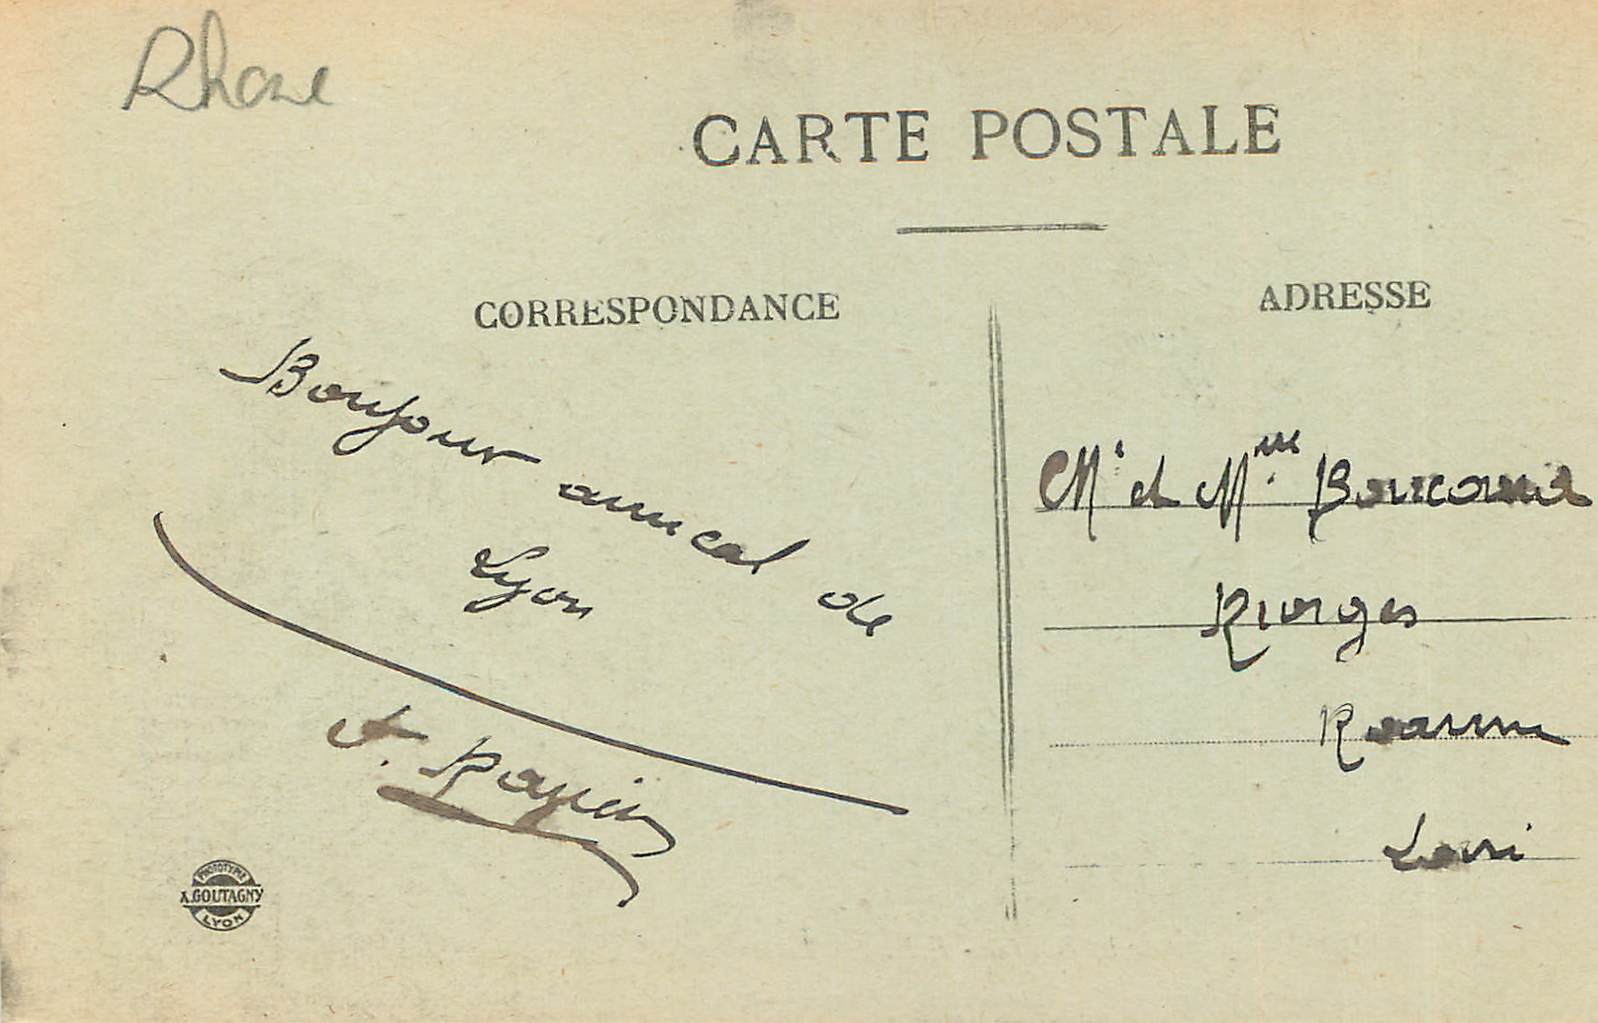 Rhone
CARTE POSTALE
CORRESPONDANCE
ADRESSE
Bonjour amical de
Lyon
Mr et Mme
Riorges
Roanne
Loire
PHOTOTYPIE
A. GOUTAGNY
LYON